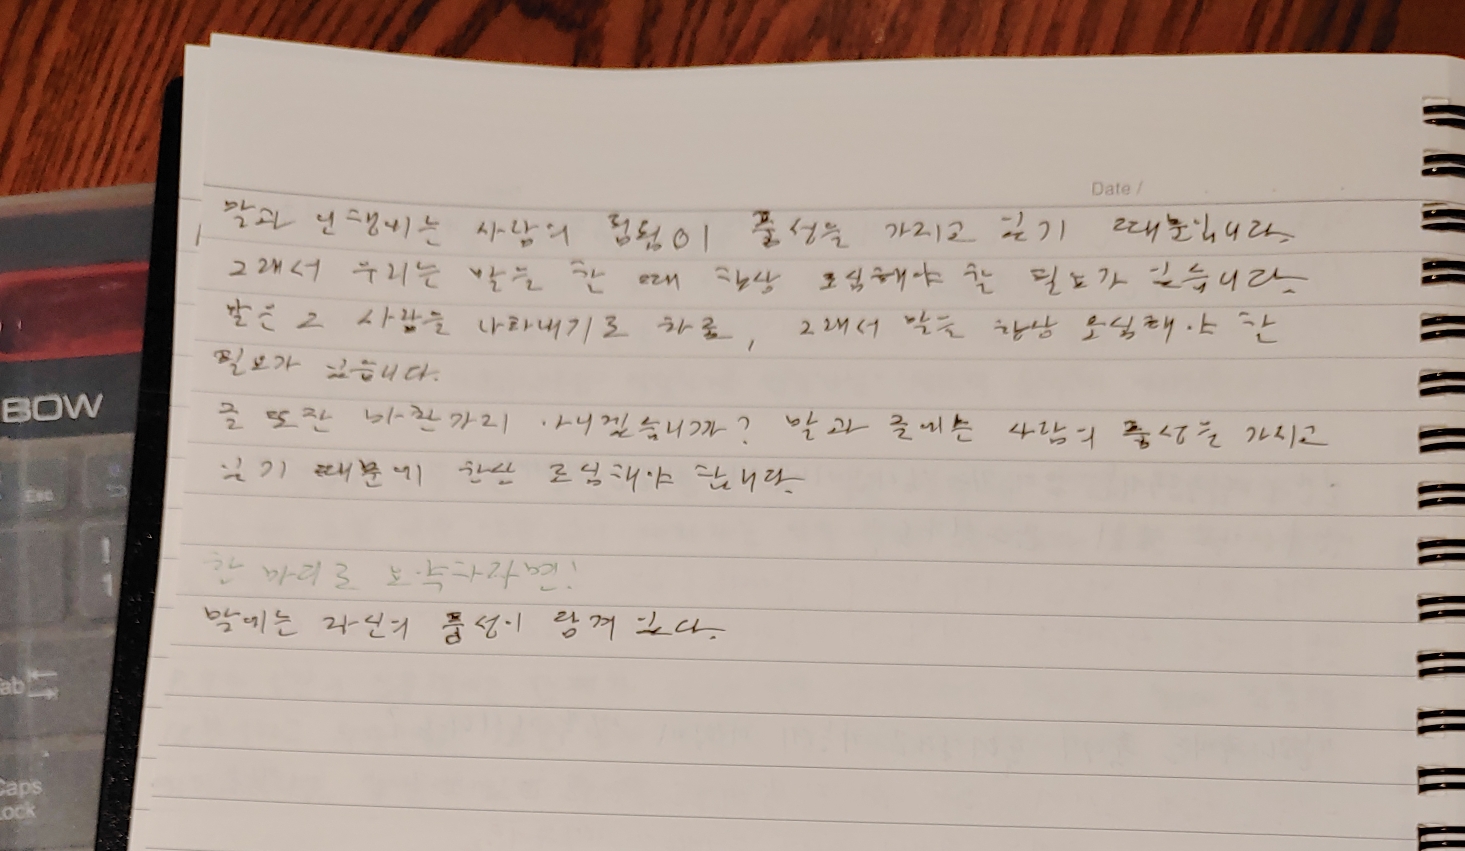 Date /
말과 인생에는 사람의 품성을 가지고 있기 때문입니다.
그래서 우리는 말을 할 때 항상 조심해야 할 필요가 있습니다.
말은 그 사람을 나타내기도 하죠, 그래서 말을 항상 조심해야 할
필요가 있습니다.
글 또한 마찬가지 아니겠습니까? 말과 글에는 사람의 품성을 가지고
있기 때문에 항상 조심해야 합니다.
한 마디로 요약하자면!
말에는 자신의 품성이 담겨 있다.
BOW
Esc
Tab
Caps
Lock